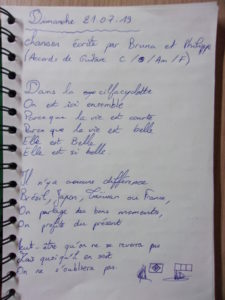 Dimanche 21.07.19
chanson écrite par Bruna et Philippe
(Accords de Guitare C / G / Am / F)
Dans la cyclopédette
On est ici ensemble
Parce que la vie est courte
Parce que la vie est belle
Elle est Belle
Elle est si belle
Il n'y a aucune différence
Brésil, Japon, Taiwan ou France,
On partage des bons moments,
On profite du présent
Peut-être qu'on ne se reverra pas
Quoi qu'il en soit
On ne s'oubliera pas